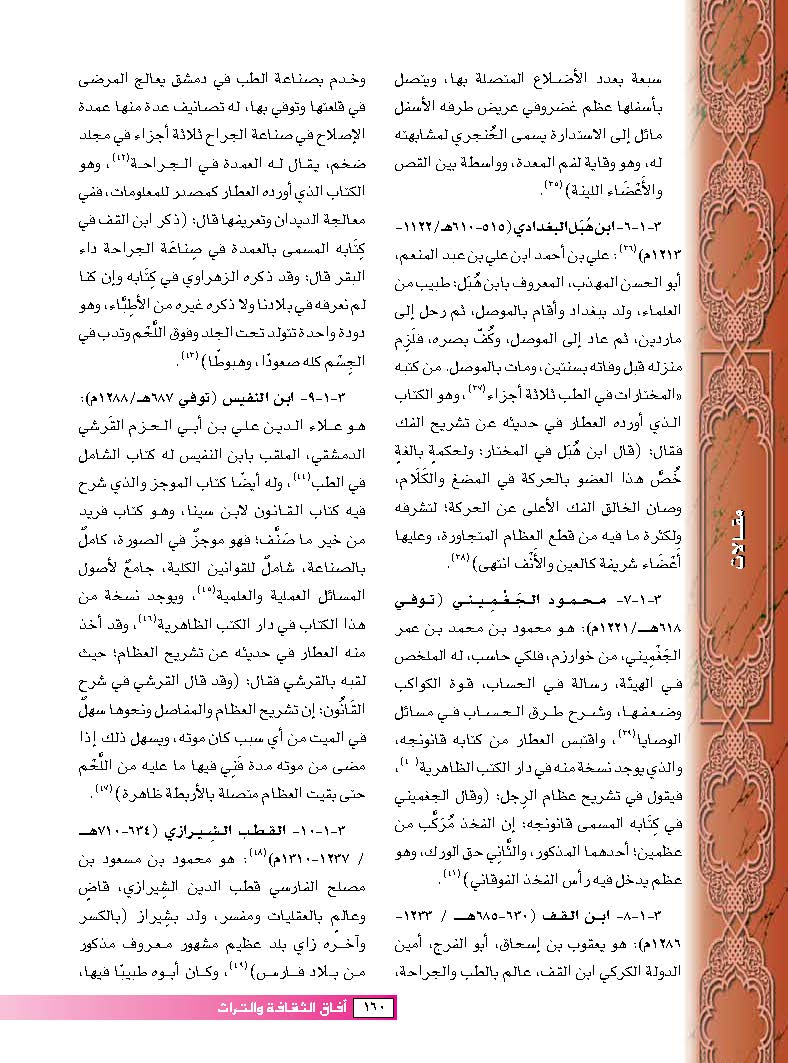 سبعة بعدد الأضلاع المتصلة بها، ويتصل
بأسفلها عظم غضروفي عريض طرفه الأسفل
مائل إلى الاستدارة يسمى الخُنجري لمشابهته
له، وهو وقاية لفم المعدة، وواسطة بين القص
والأَعْضَاء اللينة)(٣٥).
٣-١-٦- ابن هُبَل البغدادي (٥١٥-٦١٠هـ/١١٢٢-
١٢١٣م)(٣٦): علي بن أحمد ابن علي بن عبد المنعم،
أبو الحسن المهذب، المعروف بابن هُبَل: طبيب من
العلماء، ولد ببغداد وأقام بالموصل، ثم رحل إلى
ماردين، ثم عاد إلى الموصل، وكُفّ بصره، فلَزِم
منزله قبل وفاته بسنتين، ومات بالموصل. من كتبه
«المختارات في الطب ثلاثة أجزاء(٣٧)، وهو الكتاب
الذي أورده العطار في حديثه عن تشريح الفك
فقال: (قال ابن هُبَل في المختار: ولحكمةٍ بالغةٍ
خُصَّ هذا العضو بالحركة في المضغ والكَلَام،
وصان الخالق الفك الأعلى عن الحركة؛ لتشرفه
ولكثرة ما فيه من قطع العظام المتجاورة، وعليها
أَعْضَاء شريفة كالعين والأَنْف انتهى)(٣٨).
٣-١-٧- محمود الجَغْمِيني (توفي
٦١٨هـ/١٢٢١م): هو محمود بن محمد بن عمر
الجَغْمِيني، من خوارزم، فلكي حاسب، له الملخص
في الهيئة، رسالة في الحساب، قوة الكواكب
وضعفها، وشرح طرق الحساب في مسائل
الوصايا(٣٩)، واقتبس العطار من كتابه قانونجه،
والذي يوجد نسخة منه في دار الكتب الظاهرية(٤٠)،
فيقول في تشريح عظام الرجل: (وقال الجغميني
في كِتَابه المسمى قانونجه: إن الفخذ مُرَكَّب من
عظمين؛ أحدهما المذكور، والثَّانِي حق الورك، وهو
عظم يدخل فيه رأس الفخذ الفوقاني)(٤١).
٣-١-٨- ابن القف (٦٣٠-٦٨٥هـ / ١٢٣٣-
١٢٨٦م): هو يعقوب بن إسحاق، أبو الفرج، أمين
الدولة الكركي ابن القف، عالم بالطب والجراحة،
وخدم بصناعة الطب في دمشق يعالج المرضى
في قلعتها وتوفي بها، له تصانيف عدة منها عمدة
الإصلاح في صناعة الجراح ثلاثة أجزاء في مجلد
ضخم، يقال له العمدة في الجراحة(٤٢)، وهو
الكتاب الذي أورده العطار كمصدر للمعلومات، ففي
معالجة الديدان وتعريفها قال: (ذكر ابن القف في
كِتَابه المسمى بالعمدة في صِناعَة الجراحة داء
البقر قال: وقد ذكره الزهراوي في كِتَابه وإن كنا
لم نعرفه في بلادنا ولا ذكره غيره من الأَطِبَّاء، وهو
دودة واحدة تتولد تحت الجلد وفوق اللَّحْم وتدب في
الجِسْم كله صعودًا، وهبوطًا)(٤٣).
٣-١-٩- ابن النفيس (توفي ٦٨٧هـ/١٢٨٨م):
هو علاء الدين علي بن أبي الحزم القَرشي
الدمشقي، الملقب بابن النفيس له كتاب الشامل
في الطب(٤٤)، وله أيضًا كتاب الموجز والذي شرح
فيه كتاب القانون لابن سينا، وهو كتاب فريد
من خير ما صَنَّف؛ فهو موجزٌ في الصورة، كاملٌ
بالصناعة، شاملٌ للقوانين الكلية، جامعٌ لأصول
المسائل العملية والعلمية(٤٥)، ويوجد نسخة من
هذا الكتاب في دار الكتب الظاهرية(٤٦)، وقد أخذ
منه العطار في حديثه عن تشريح العظام؛ حيث
لقبه بالقرشي فقال: (وقد قال القرشي في شرح
القَانُون: إن تشريح العظام والمفاصل ونحوها سهلٌ
في الميت من أي سبب كان موته، ويسهل ذلك إذا
مضى من موته مدة فَنِي فيها ما عليه من اللَّحْم
حتى بقيت العظام متصلة بالأربطة ظاهرة)(٤٧).
٣-١-١٠- القطب الشِيرازي (٦٣٤-٧١٠هـ
/ ١٢٣٧-١٣١٠م)(٤٨): هو محمود بن مسعود بن
مصلح الفارسي قطب الدين الشِيرازي، قاضٍ
وعالم بالعقليات ومفسر، ولد بشِيراز (بالكسر
وآخره زاي بلد عظيم مشهور معروف مذكور
من بلاد فارس)(٤٩)، وكان أبوه طبيبًا فيها،
مقالات
١٦٠
آفاق الثقافة والتراث